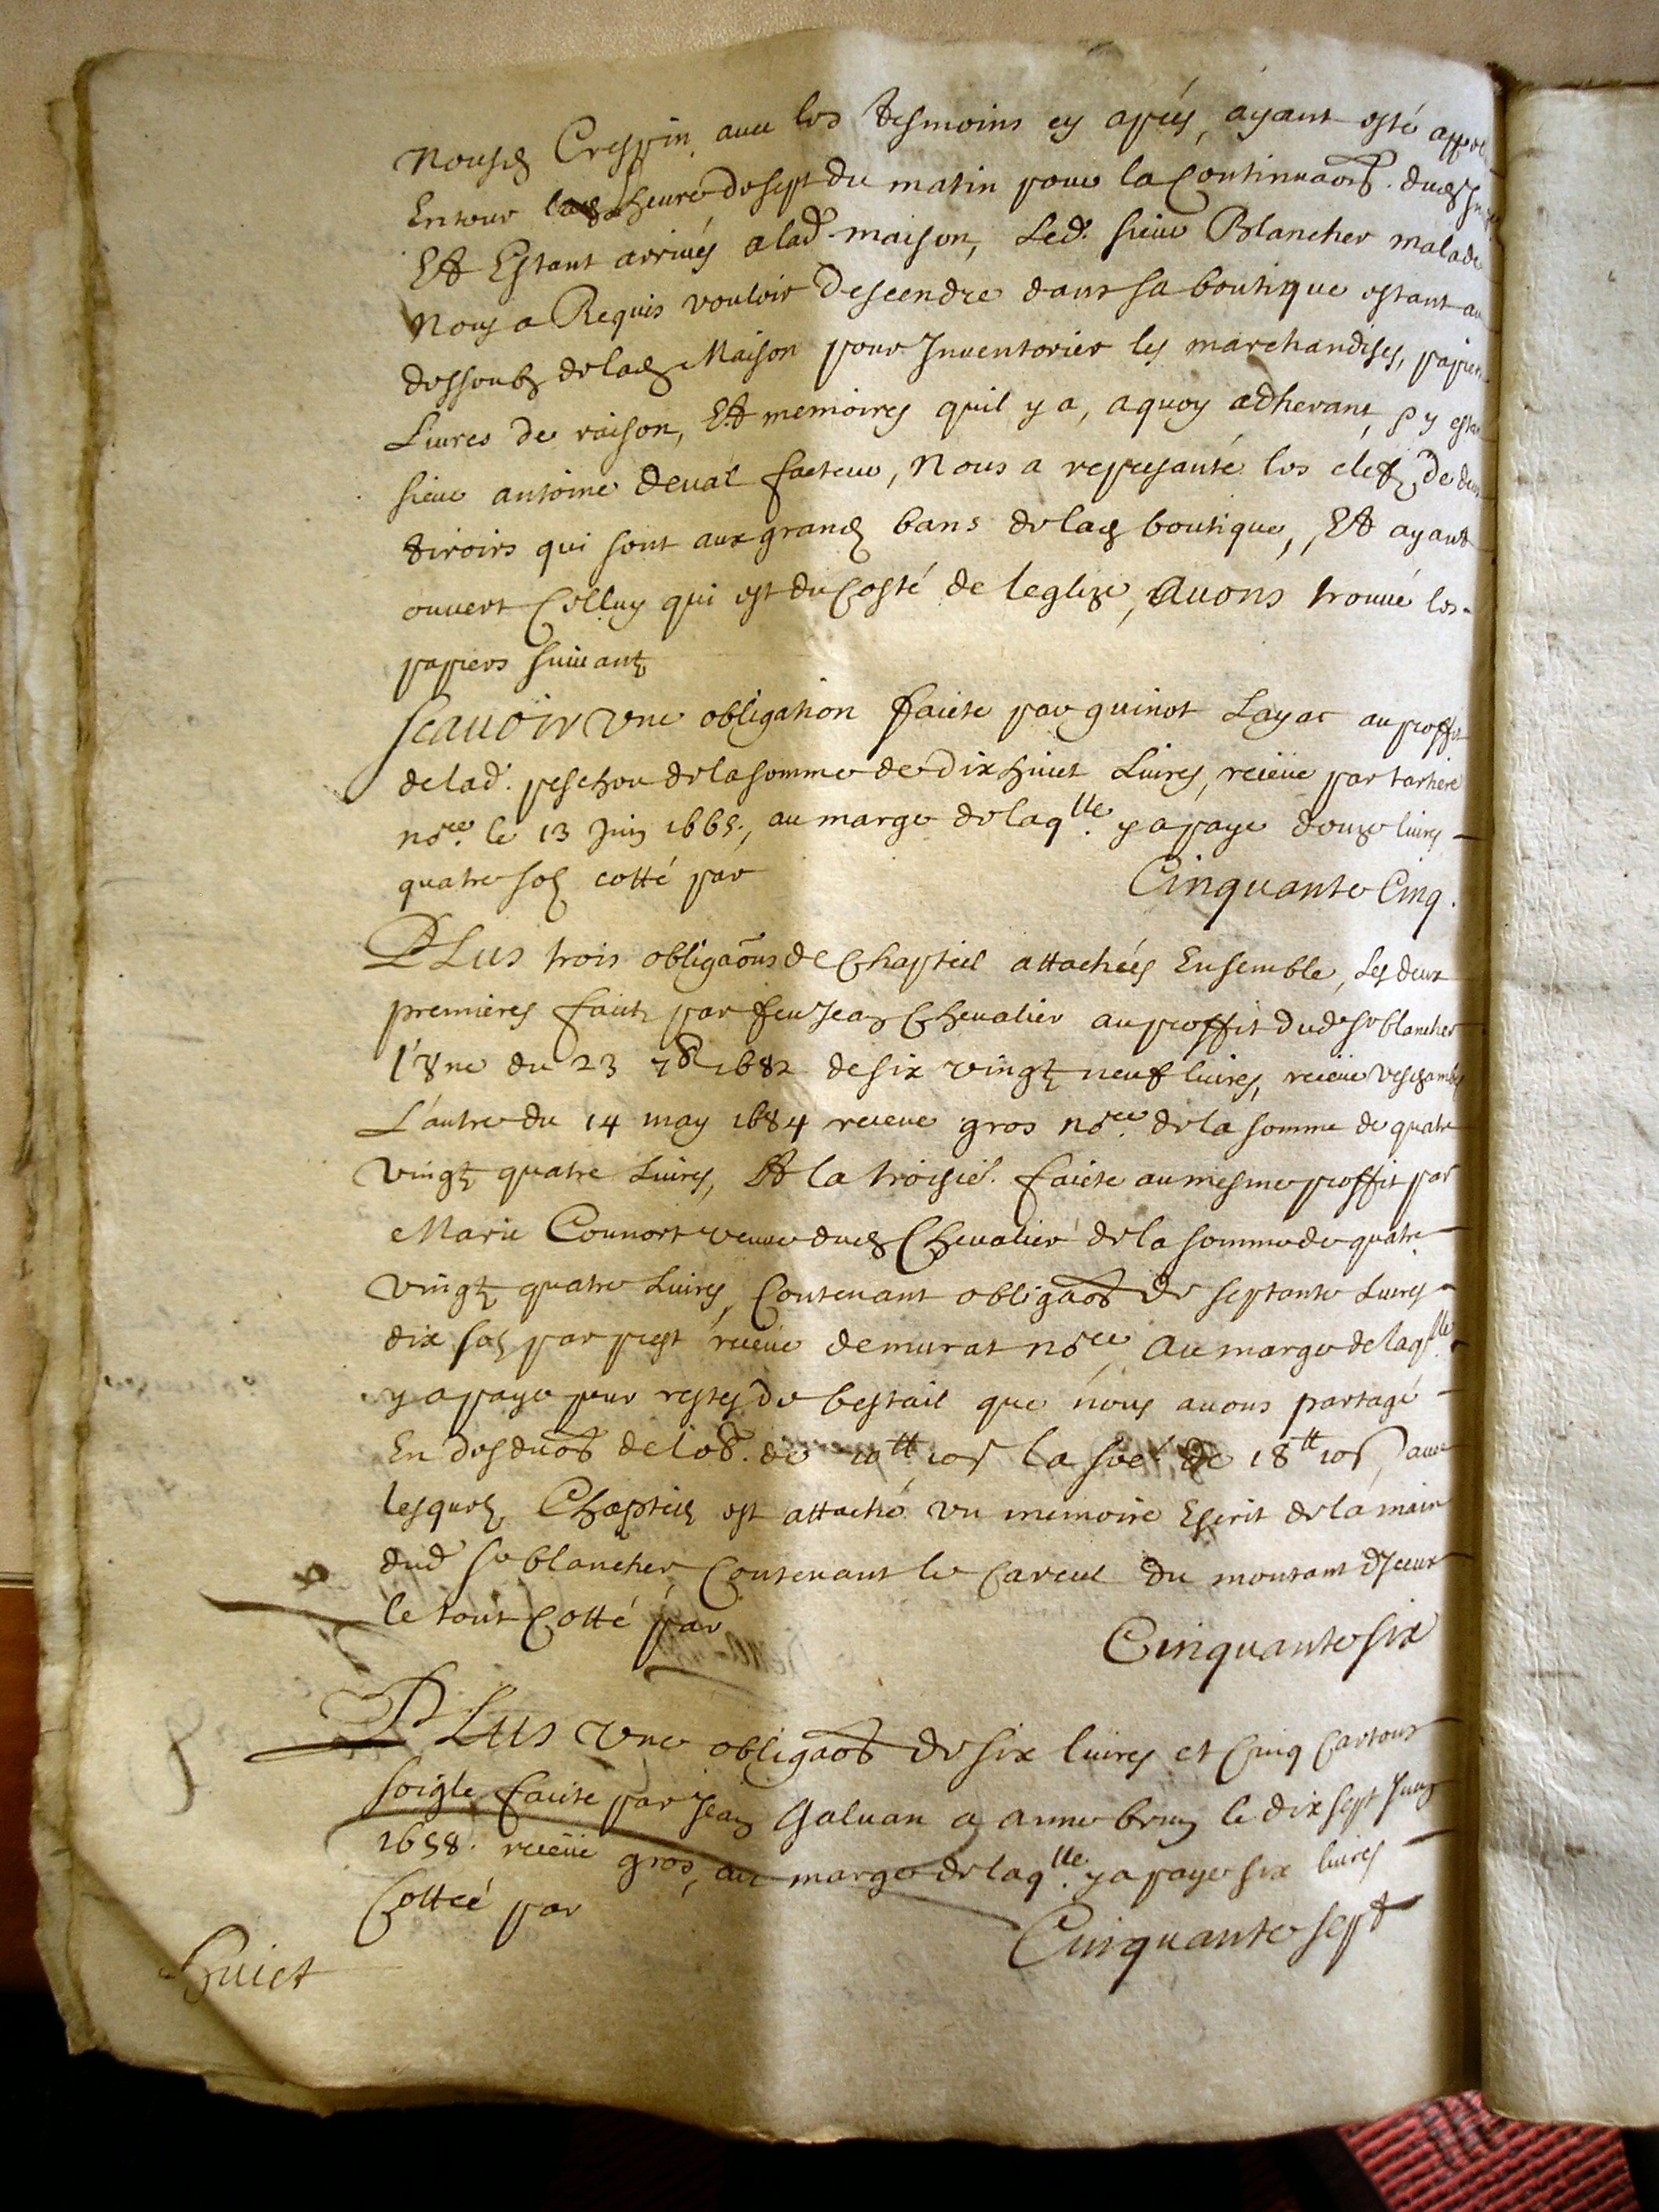 nousd Crespin, avec les tesmoins cy apres, ayant esté
Entour heure de sept du matin pour la Continuaon. dud
Et Estant arrivés a lad. maison, Led. sieur Blancher malade
Nous a Requis vouloir Descendre dans sa boutique estant au
dessoubz de lad Maison pour Inventorier les marchandises, papiers
Livres de raison, Et memoires quil y a, aquoy adherant, sy
sieur antoine deval facteur, Nous a represanté les clefz de deux
tiroirs qui sont aux grand bans de lad boutique, Et ayant
ouvert Celluy qui est du Costé de leglize, Avons trouvé les
papiers suivantz
Scavoir Une obligation faicte par guinot Layac au proffit
de lad. peschou de la somme de Dix huict Livres, receue par
nore. le 13 Juin 1665., au marge de laqlle. y a paye douze livres
quatre solz cotté par Cinquante Cinq.
PLus trois obligaons de Chapteil attachées Ensemble, Les deux
premieres faictz par feu Jean Chevalier au proffit dud sr blancher
l'Une du 23 7b 1682 de six vingtz neuf livres, receue
L'autre du 14 may 1684 receue gros nore. de la somme de quatre
vingtz quatre Livres, Et la troisie. faicte au mesme proffit par
Marie Connort veuve dud Chevalier de la somme de quatre
vingtz quatre Livres, Contenant obligaon de septante Livres
dix solz par prest receue demurat nore, Au marge de laqlle.
y a paye pour restes de bestail que nous avons partagé
En desduon de lob. de 10s la soe. de 18tt 10s, avec
lesquelz Chapteilz est attaché un memoire Escrit de la main
dud sr blancher Contenant le Carcul du montant diceux
le tout Cotté par Cinquante six
PLus Une obligaon de six livres et Cinq Cartons
soigle faicte par Jean Galvan a anne brun le dix sept Juing
1658. receue gros, au marge de laqlle. y a paye six livres
Cottée par Cinquante sept
huict